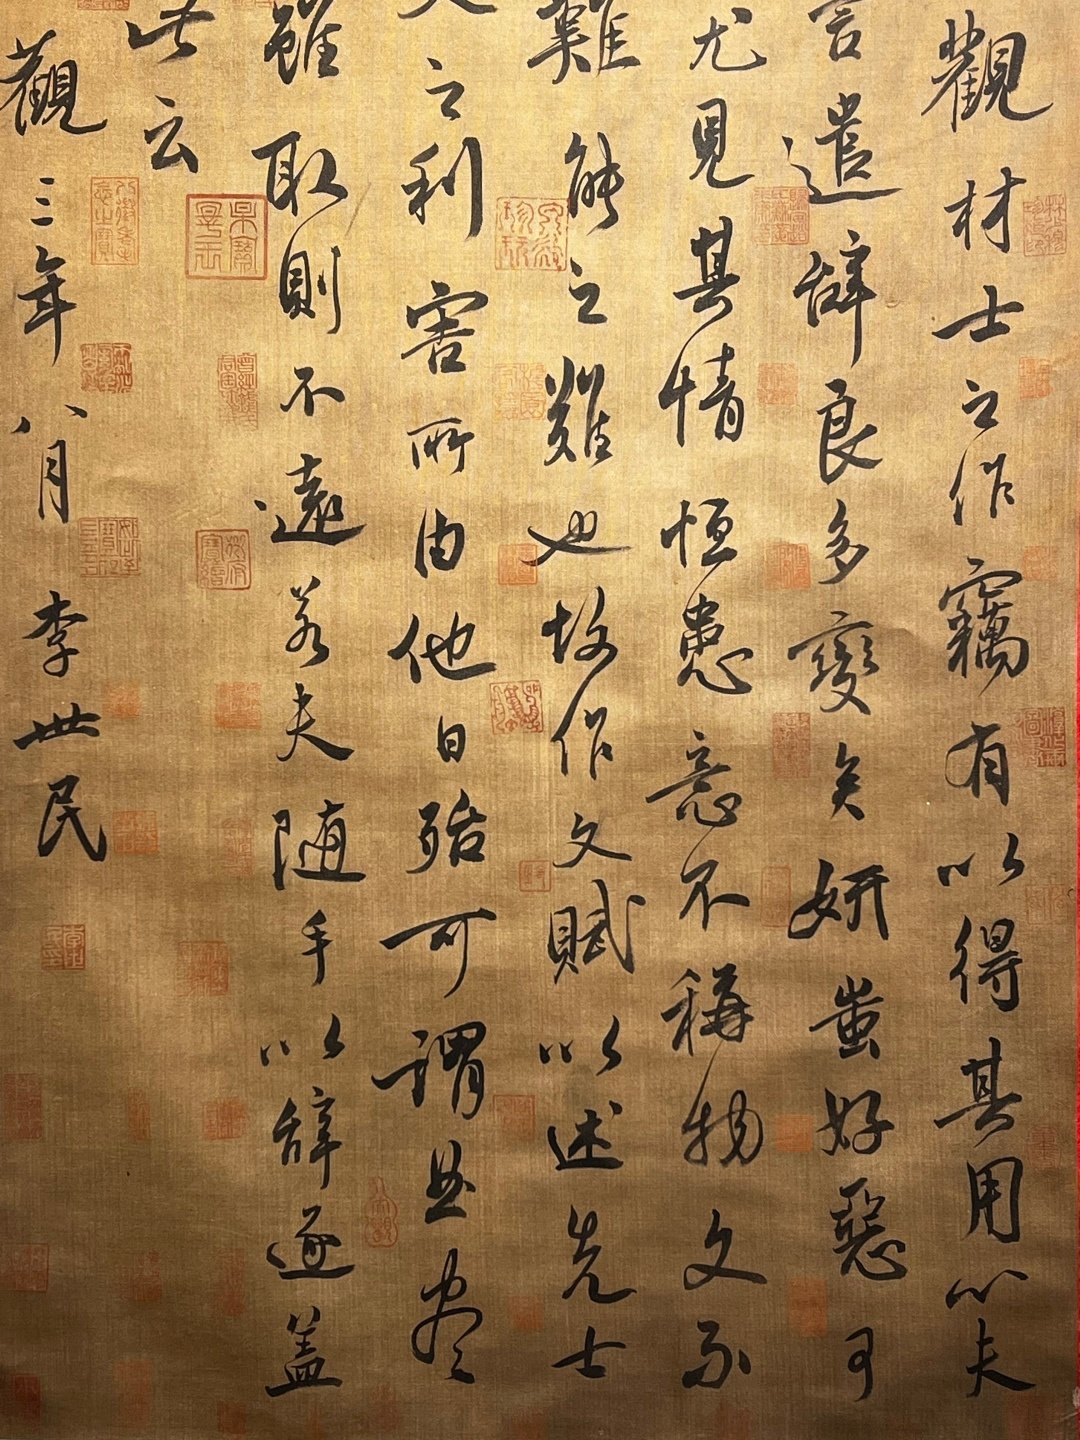 觀材士之作竊有以得其用心夫
言遣辞良多變矣妍蚩好惡可
尤見其情恒患意不稱物文不
難能之難也故作文賦以述先士
之利害所由他日殆可謂曲盡
雖取則不遠若夫随手以辞逐盖
此云
觀三年八月李世民